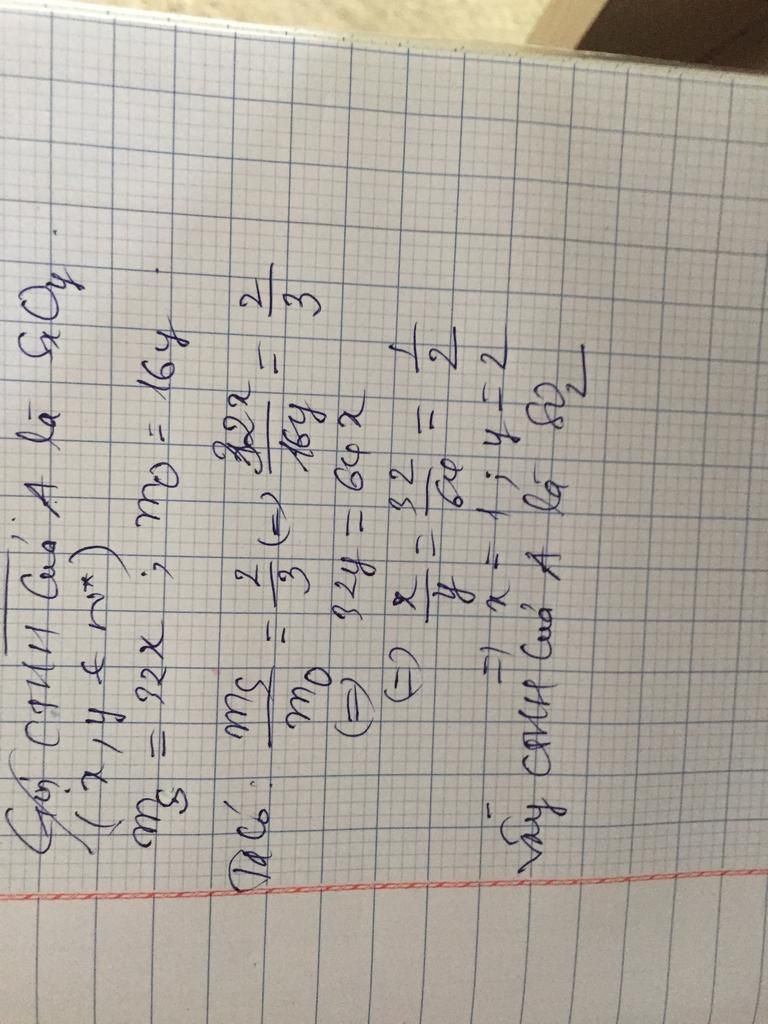 Gọi CTHH của A là SxOy.
(x, y ∈ N*)
mS = 32x ; mO = 16y.
Ta có. mS/mO = 2/3 (=) 32x/16y = 2/3
(=) 32y = 64x
(=) x/y = 32/64 = 1/2
=) x = 1 ; y = 2
Vậy CTHH của A là SO2